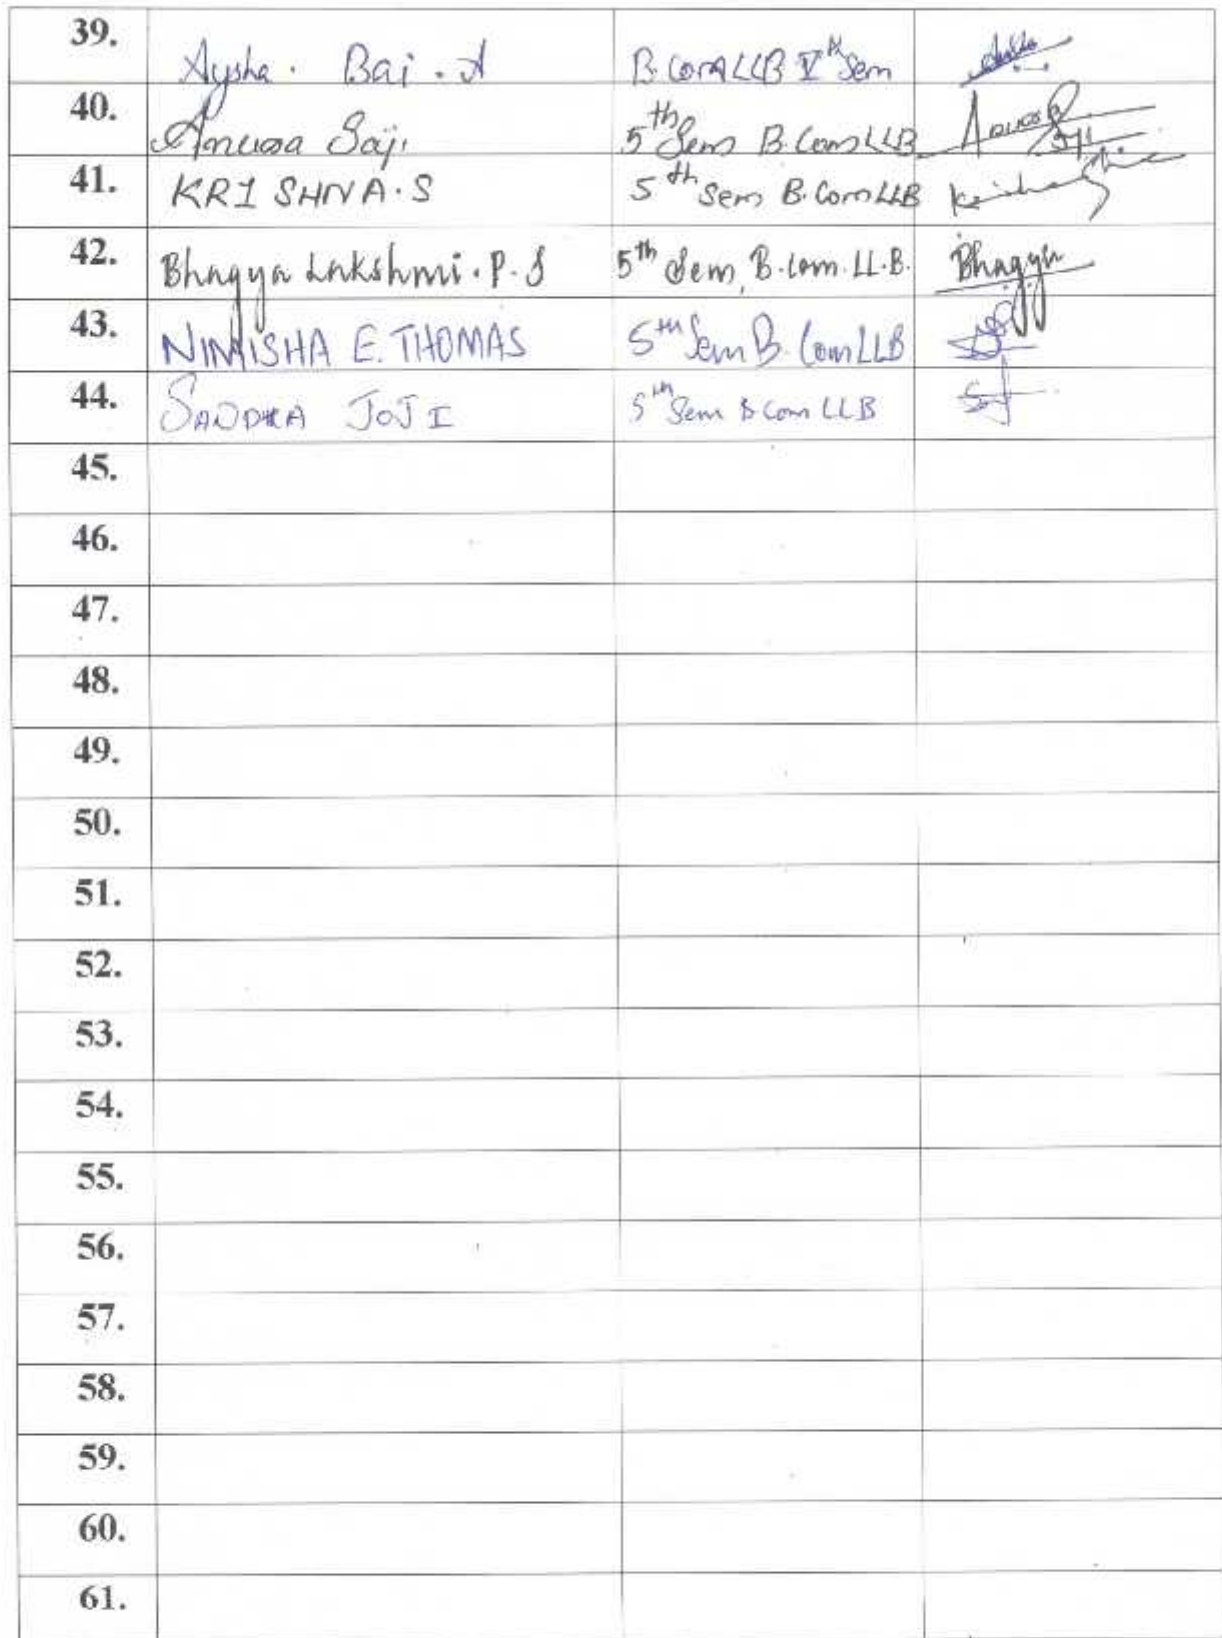 39. Aysha . Bai . A B.Com LLB Vth Sem
40. Saji 5th Sem B.Com LLB
41. KRISHNA.S 5th Sem B.Com LLB Krishna
42. Bhagya Lakshmi.P.S 5th Sem, B.Com. LL.B. Bhagya
43. NIMISHA E. THOMAS 5th Sem B.Com LLB
44. SANDRA JOJI 5th Sem B Com LLB
45.
46.
47.
48.
49.
50.
51.
52.
53.
54.
55.
56.
57.
58.
59.
60.
61.